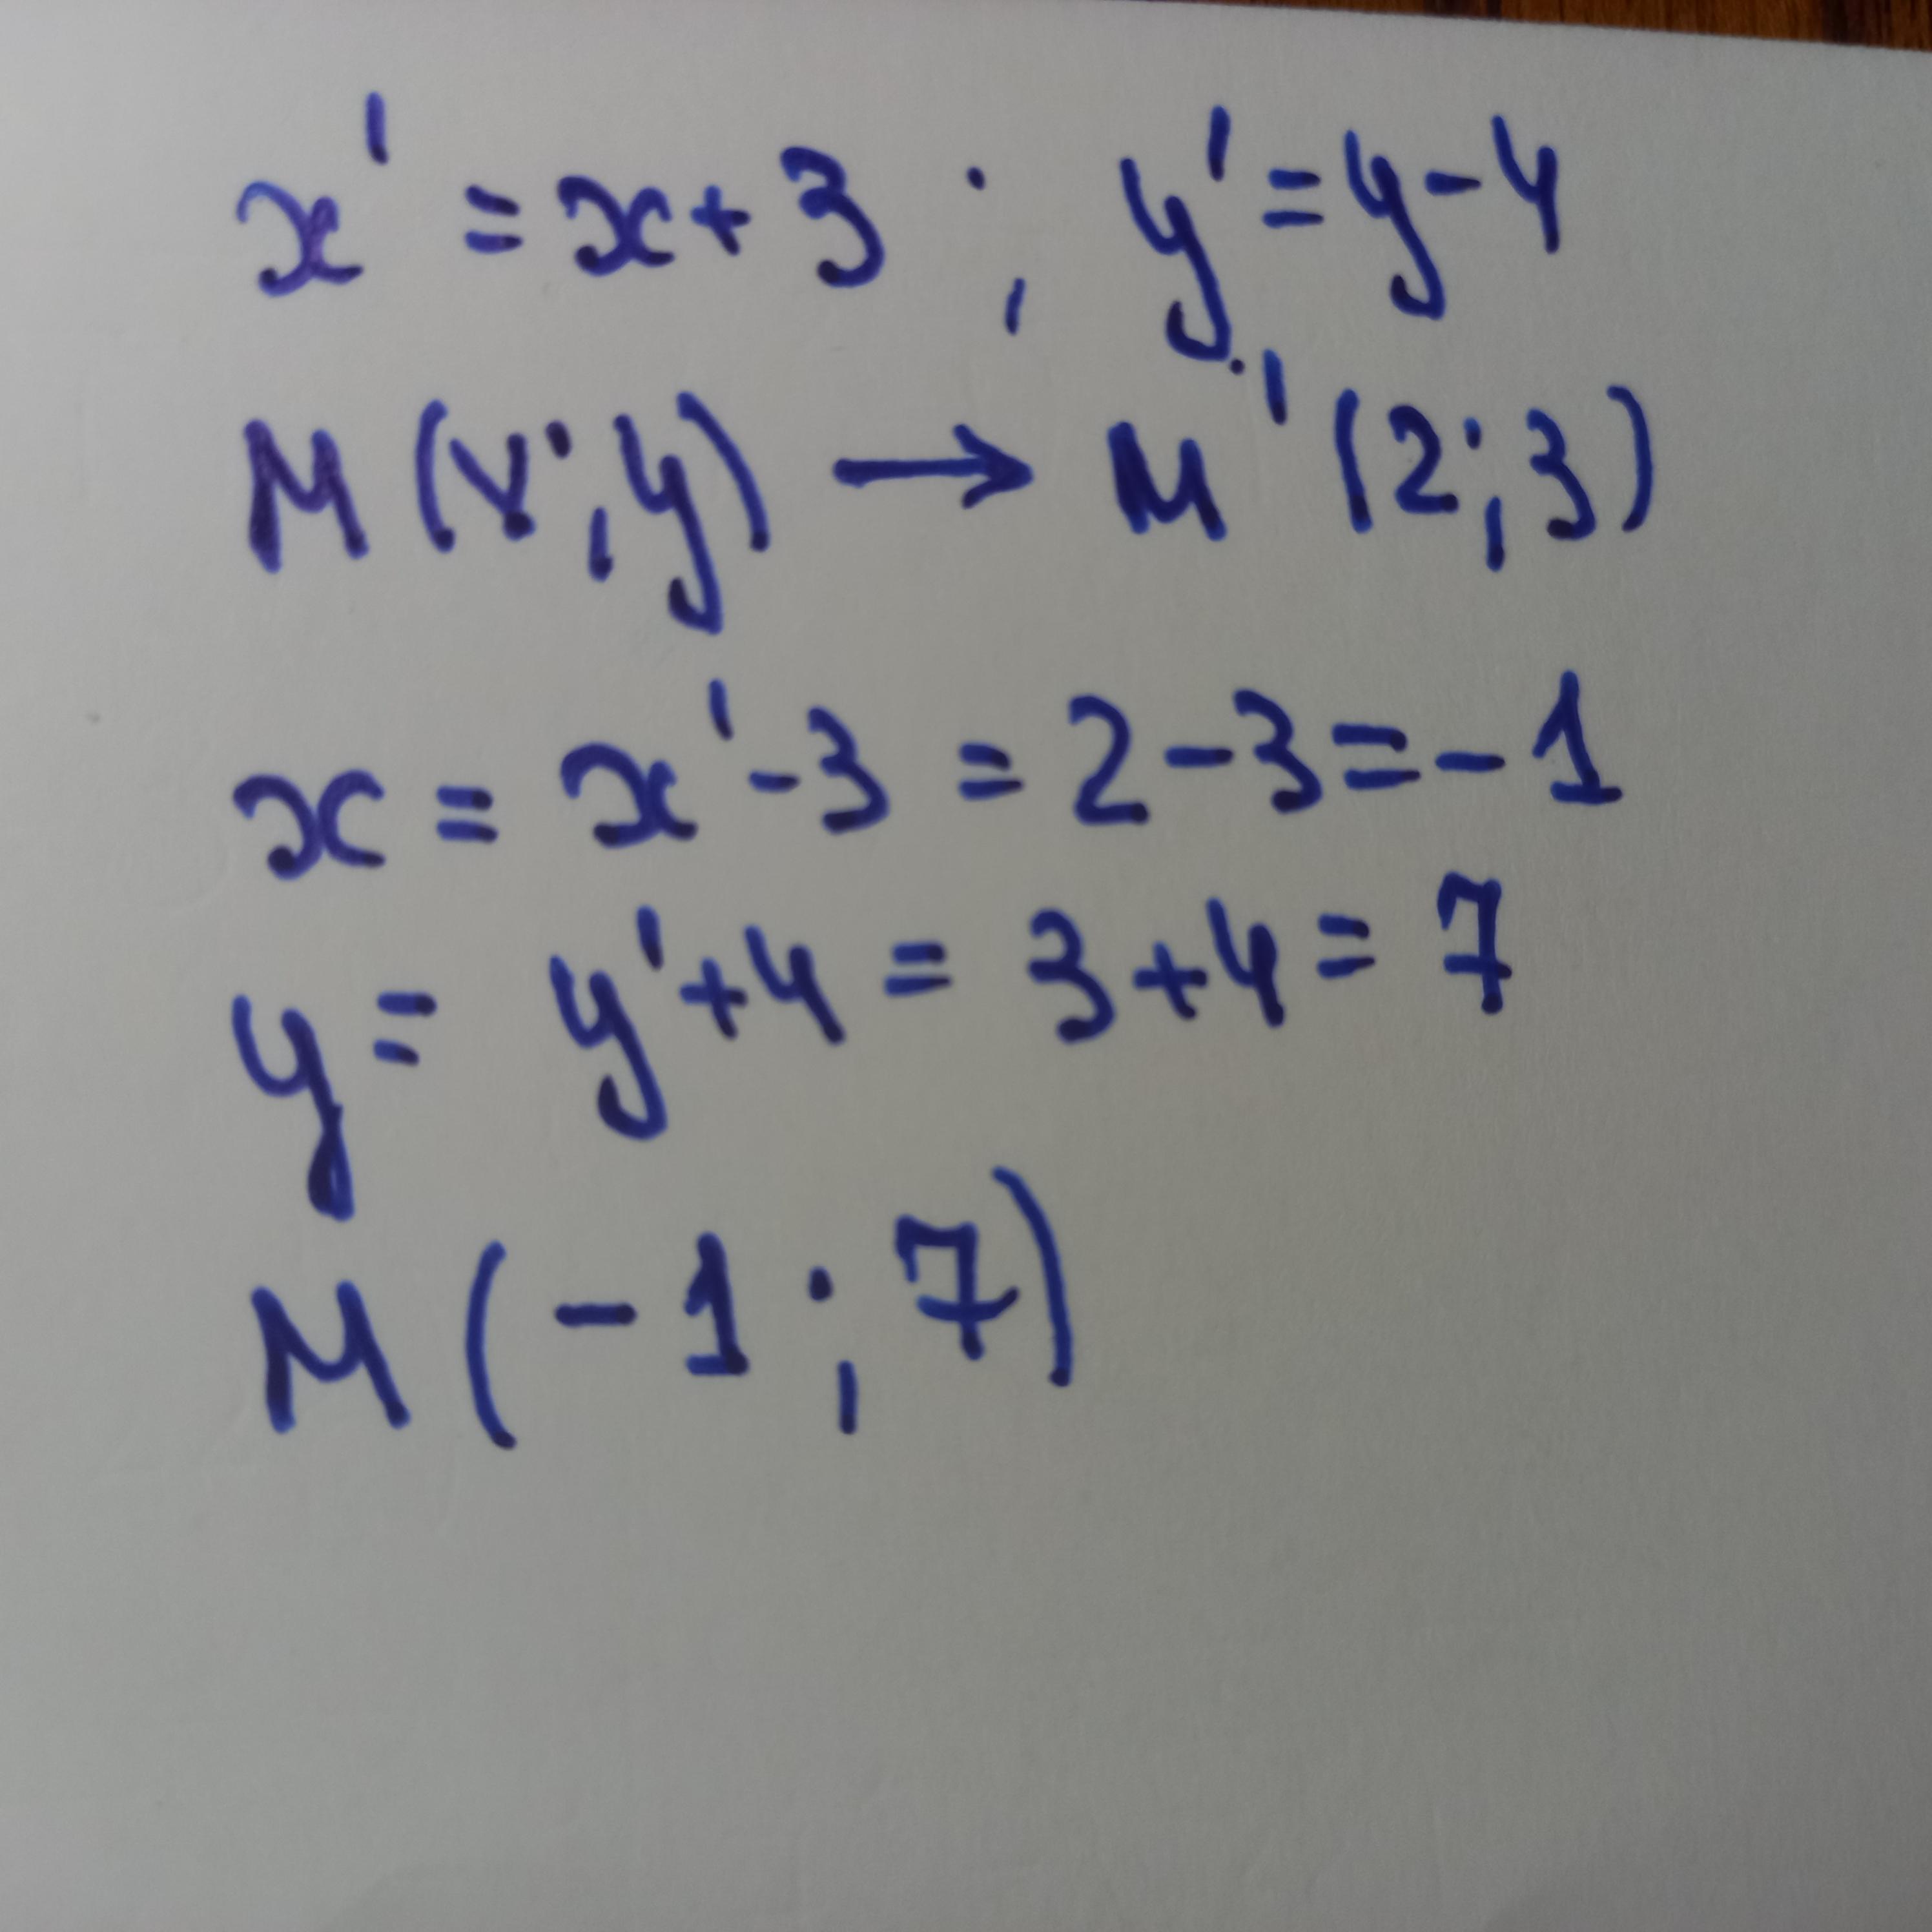 x' = x + 3 ; y' = y - 4
M (x ; y) → M' (2 ; 3)
x = x' - 3 = 2 - 3 = - 1
y = y' + 4 = 3 + 4 = 7
M (- 1 ; 7)